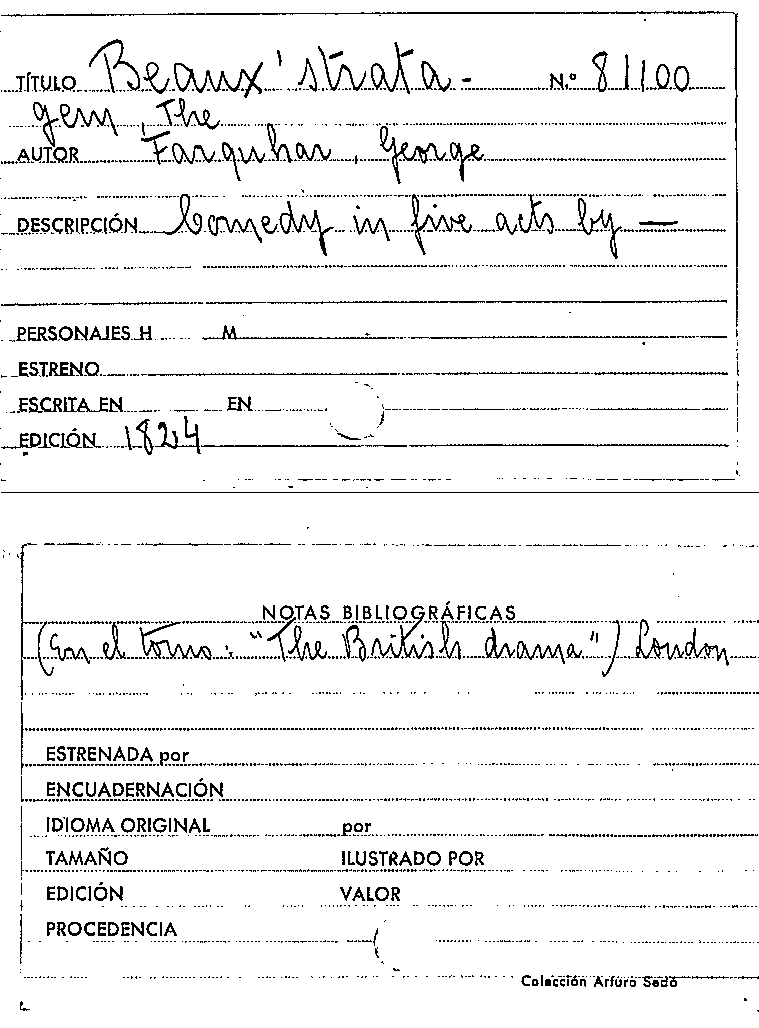 TÍTULO Beaux' strata- N.º 81100
gem, The
AUTOR Farquhar, George
DESCRIPCIÓN Comedy in five acts by —
PERSONAJES H M
ESTRENO
ESCRITA EN EN
EDICIÓN 1824
NOTAS BIBLIOGRÁFICAS
(En el tomo: "The British drama") London
ESTRENADA por
ENCUADERNACIÓN
IDIOMA ORIGINAL por
TAMAÑO ILUSTRADO POR
EDICIÓN VALOR
PROCEDENCIA
Colección Arturo Sedó